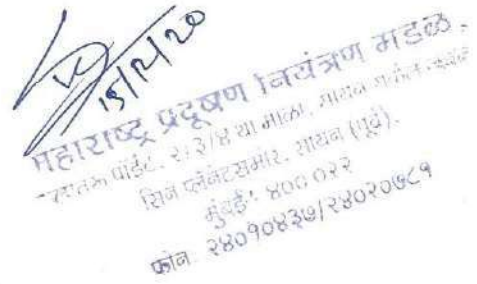 15/12/20
महाराष्ट्र प्रदूषण नियंत्रण मंडळ.
पॉईंट, २रा/३/४ था माळा, सायन सर्कल
सिने प्लॅनेटसमोर, सायन (पूर्व).
मुंबई- ४०० ०२२
फोन. २४०१०४३७/२४०२०७८१